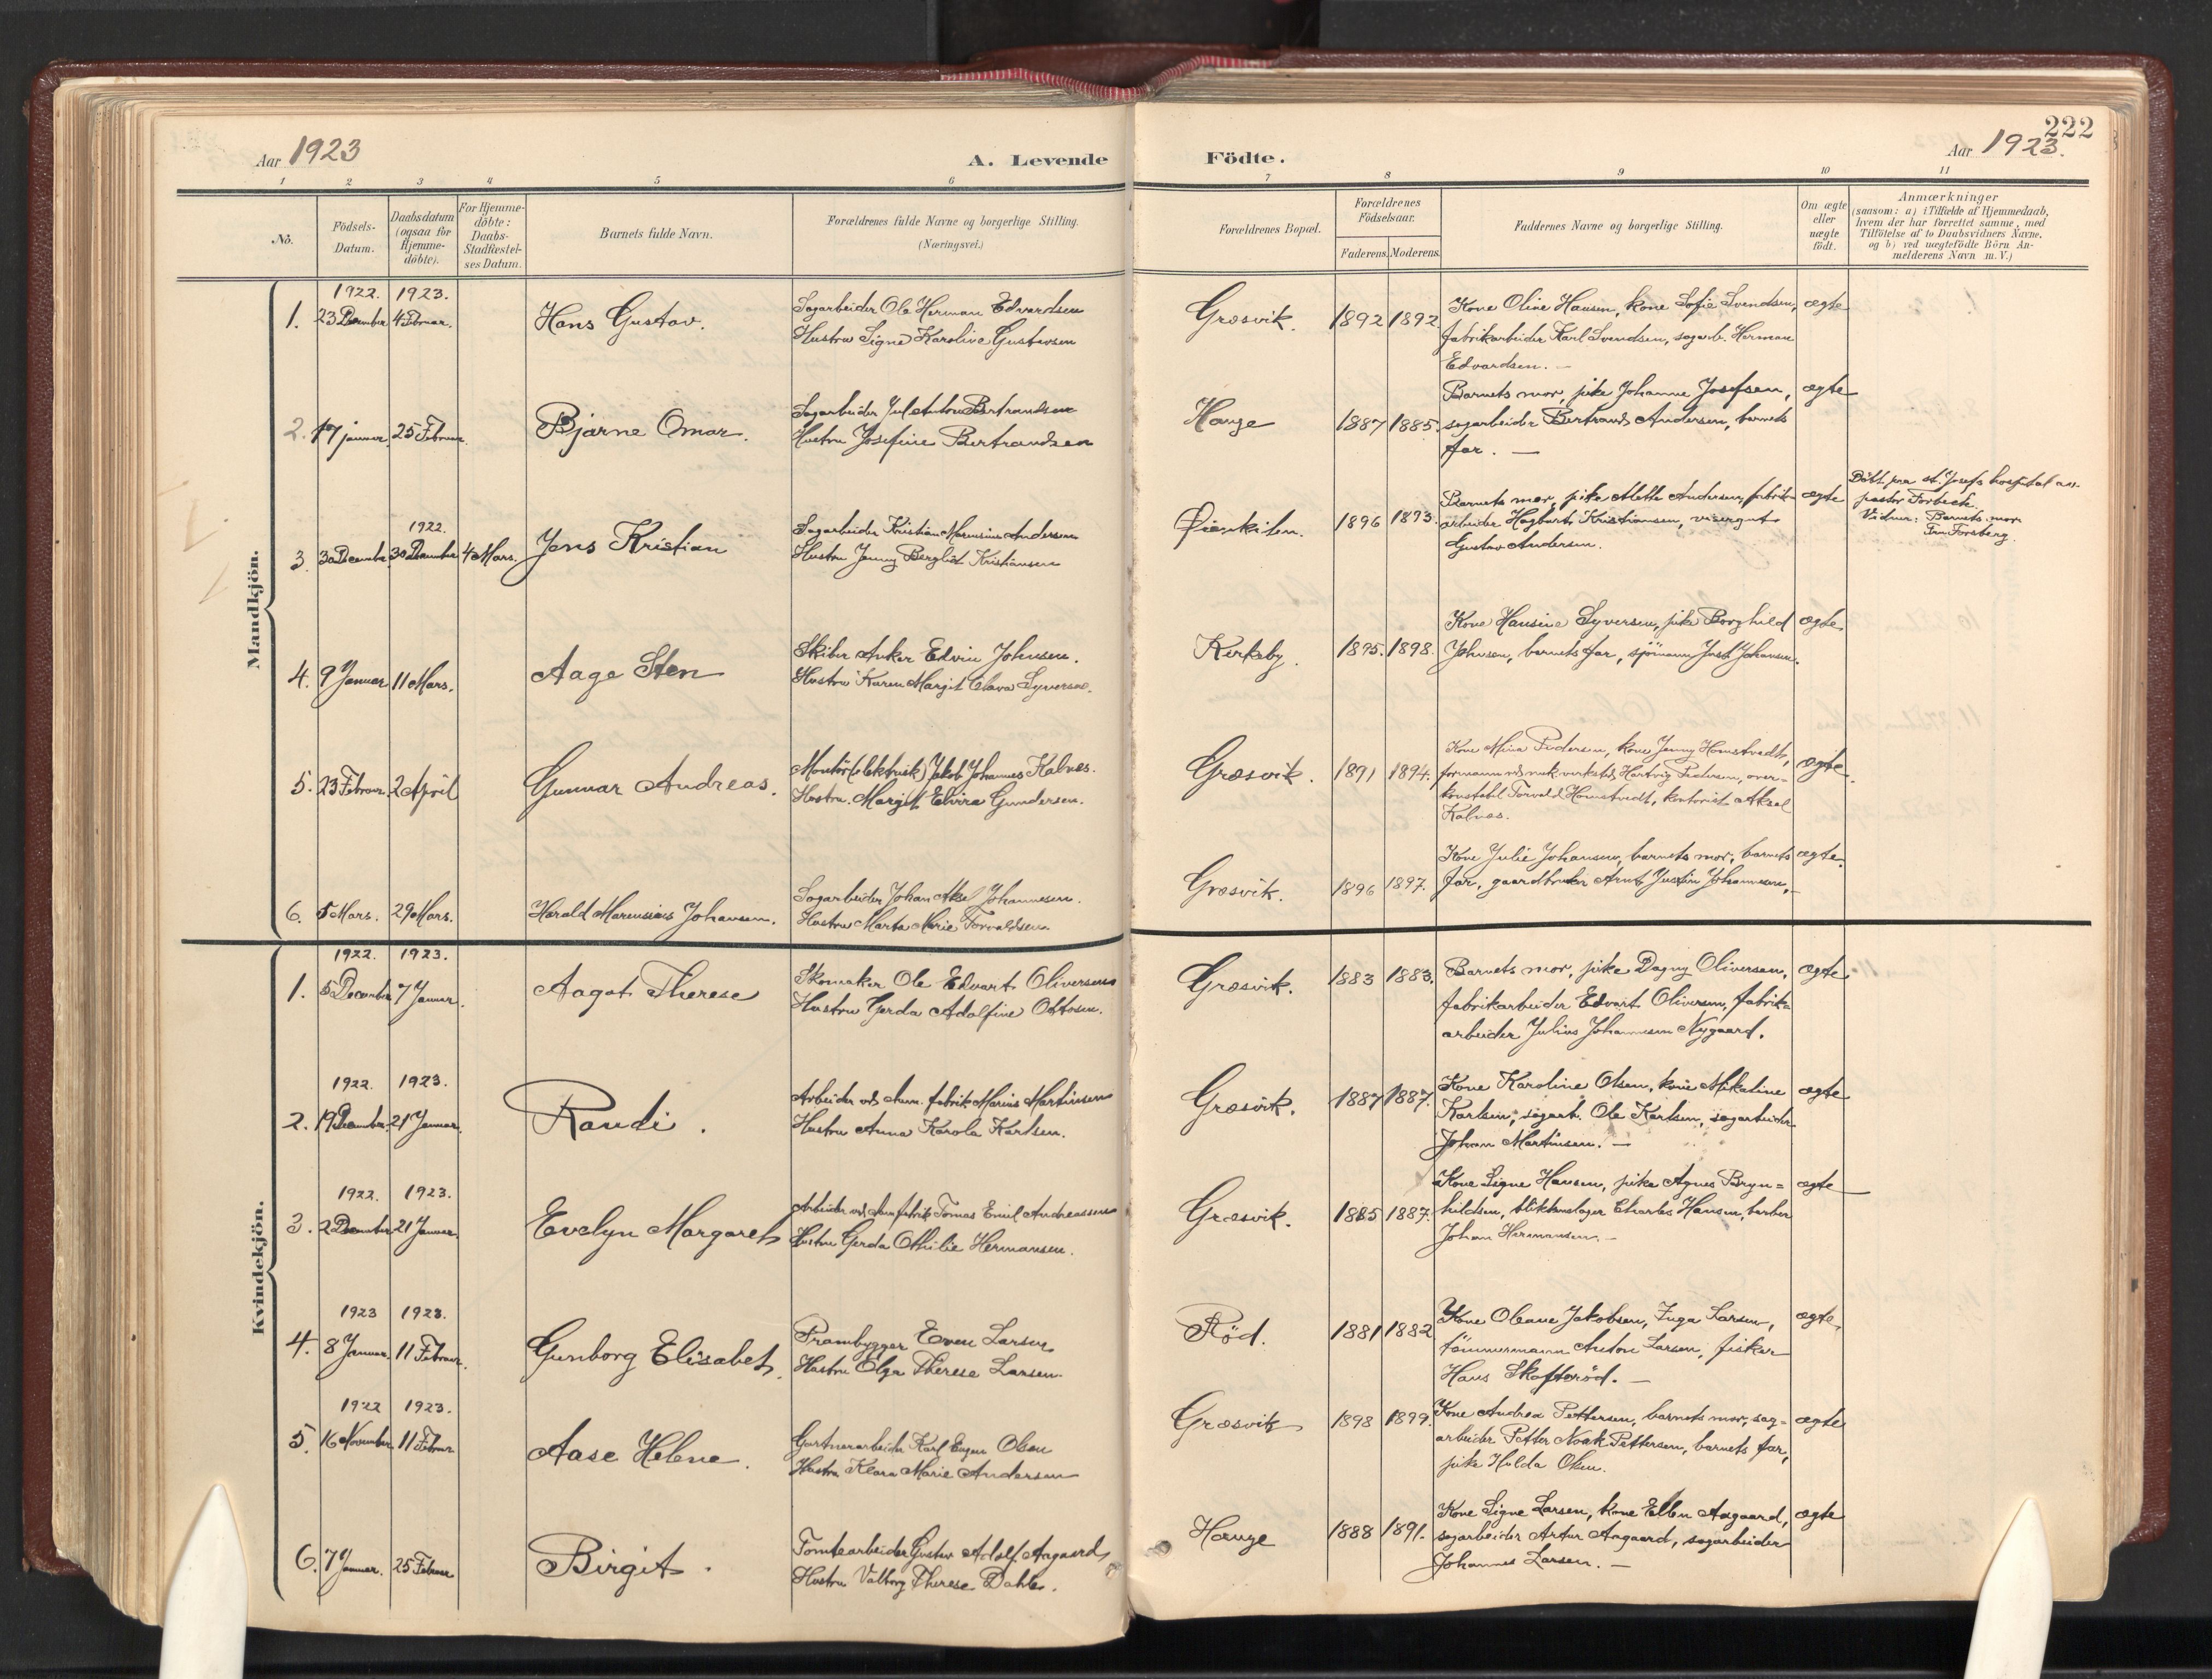 222
Aar 1923
A. Levende
Födte.
Aar 1923.
1 2 3 4 5 6 7 8 9 10 11
No.
Födsels-
Datum.
Daabsdatum
(ogsaa for
Hjemme-
döbte).
For Hjemme-
döbte:
Daabs-
Stadfæstel-
ses Datum.
Barnets fulde Navn.
Forældrenes fulde Navne og borgerlige Stilling.
(Næringsvei.)
Forældrenes Bopæl.
Forældrenes
Födselsaar.
Faderens. Moderens.
Faddernes Navne og borgerlige Stilling.
Om ægte
eller
uægte
födt.
Anmærkninger
(saasom: a) i Tilfælde af Hjemmedaab,
hvem der har forrettet samme, med
Tilföielse af to Daabsvidners Navne.
og b) ved uægtefödte Börn An-
melderens Navn m. V.)
Mandkjön.
1922. 1923.
1. 23 December 4 Februar.
Hans Gustav.
Sagarbeider Ole Herman Edvardsen
Hustru Signe Karoline Gustavsen
Græsvik.
1892 1892.
Kone Oline Hansen, kone Sofie Svendsen,
fabrikarbeider Karl Svendsen, sagarb. Herman
Edvardsen. —
ægte
2. 17 januar 25 Februar.
Bjarne Omar.
Sagarbeider Jul Anton Bertrandsen
Hustru Josefine Bertrandsen
Hauge
1887 1885.
Barnets mor, pike Johanne Josefsen,
sagarbeider Bertrand Andersen, barnets
far. —
ægte
1922.
3. 30 December 30 December 4 Mars.
Jens Kristian
Sagarbeider Kristian Marensius Andersen
Hustru Jenny Bergliot Kristiansen
Øienkilen.
1896 1893.
Barnets mor, pike Mette Andersen, fabrik-
arbeider Hagbart Kristiansen, visergut
Gustav Andersen.
ægte
Döbt paa st. Josefs hospital av
pastor Forbeck.
Vidner: Barnets mor
Fru Forsberg.
4. 9 Januar 11 Mars.
Aage Sten
Skiber Anker Edvin Johnsen.
Hustru Karen Margit Clara Syversen.
Kirkeby.
1895. 1898.
Kone Hansine Syversen, pike Borghild
Johnsen, barnets far, sjömann Just Johansen.
ægte
5. 23 Februar. 2 April
Gunnar Andreas.
Montör (elektrisk) Jakob Johannes Kalnes.
Hustru Margit Elvira Gundersen.
Græsvik.
1891 1894.
Kone Mina Pedersen, kone Jenny Homstvedt,
formann ved mek. verksted Hartvig Pedersen, over-
konstabel Torvald Homstvedt, kontorist Aksel
Kalnes.
ægte.
6. 5 Mars. 29 Mars.
Harald Marensius Johansen.
Sagarbeider Johan Aksel Johannesen.
Hustru Marta Marie Torvaldsen
Græsvik.
1896 1897.
Kone Julie Johansen, barnets mor, barnets
far, gaardbruker Arnt Justin Johannesen. —
ægte.
Kvindekjön.
1922. 1923.
1. 5 December 7 Januar.
Aagot Therese
Skomaker Ole Edvart Oliversen
Hustru Gerda Adolfine Ottosen.
Græsvik.
1883 1883.
Barnets mor, pike Dagny Oliversen,
fabrikarbeider Edvart Oliversen, fabrik=
arbeider Julius Johannesen Nygaard.
ægte
1922. 1923.
2. 19 December 21 Januar.
Randi.
Arbeider ved kem. fabrik Marius Martinsen
Hustru Anna Karola Karlsen.
Græsvik.
1887 1887.
Kone Karoline Olsen, kone Mikaline
Karlsen, sagarb. Ole Karlsen, sagarbeider
Johan Martinsen. —
ægte
1922. 1923.
3. 2 December 21 Januar.
Evelyn Margaret
Arbeider ved kem fabrik Tomas Emil Andreassen
Hustru Gerda Othilie Hermansen.
Græsvik.
1885 1887.
Kone Signe Hansen, pike Agnes Bryn=
hildsen, blikkenslager Charles Hansen, barber
Johan Hermansen. —
ægte
1923 1923.
4. 8 Januar. 11 Februar.
Gunborg Elisabet.
Prambygger Even Larsen
Hustru Olga Therese Larsen.
Röd.
1881 1882
Kone Oleane Jakobsen, Inga Larsen,
tömmermann Anton Larsen, fisker
Hans Skofteröd. —
ægte
1922 1923.
5. 16 November 11 Februar
Aase Helene.
Gartnerarbeider Karl Eugen Olsen
Hustru Klara Marie Andersen
Græsvik
1898 1899.
Kone Andrea Pettersen, barnets mor, sag=
arbeider Petter Noak Pettersen, barnets far,
pike Hulda Olsen.
ægte
6. 7 Januar. 25 Februar
Birgit.
Tomtearbeider Gustav Adolf Aagaard
Hustru Valborg Therese Dahle.
Hauge
1888 1891.
Kone Signe Larsen, kone Ellen Aagaard,
sagarbeider Artur Aagaard, sagarbeider
Johannes Larsen. —
ægte